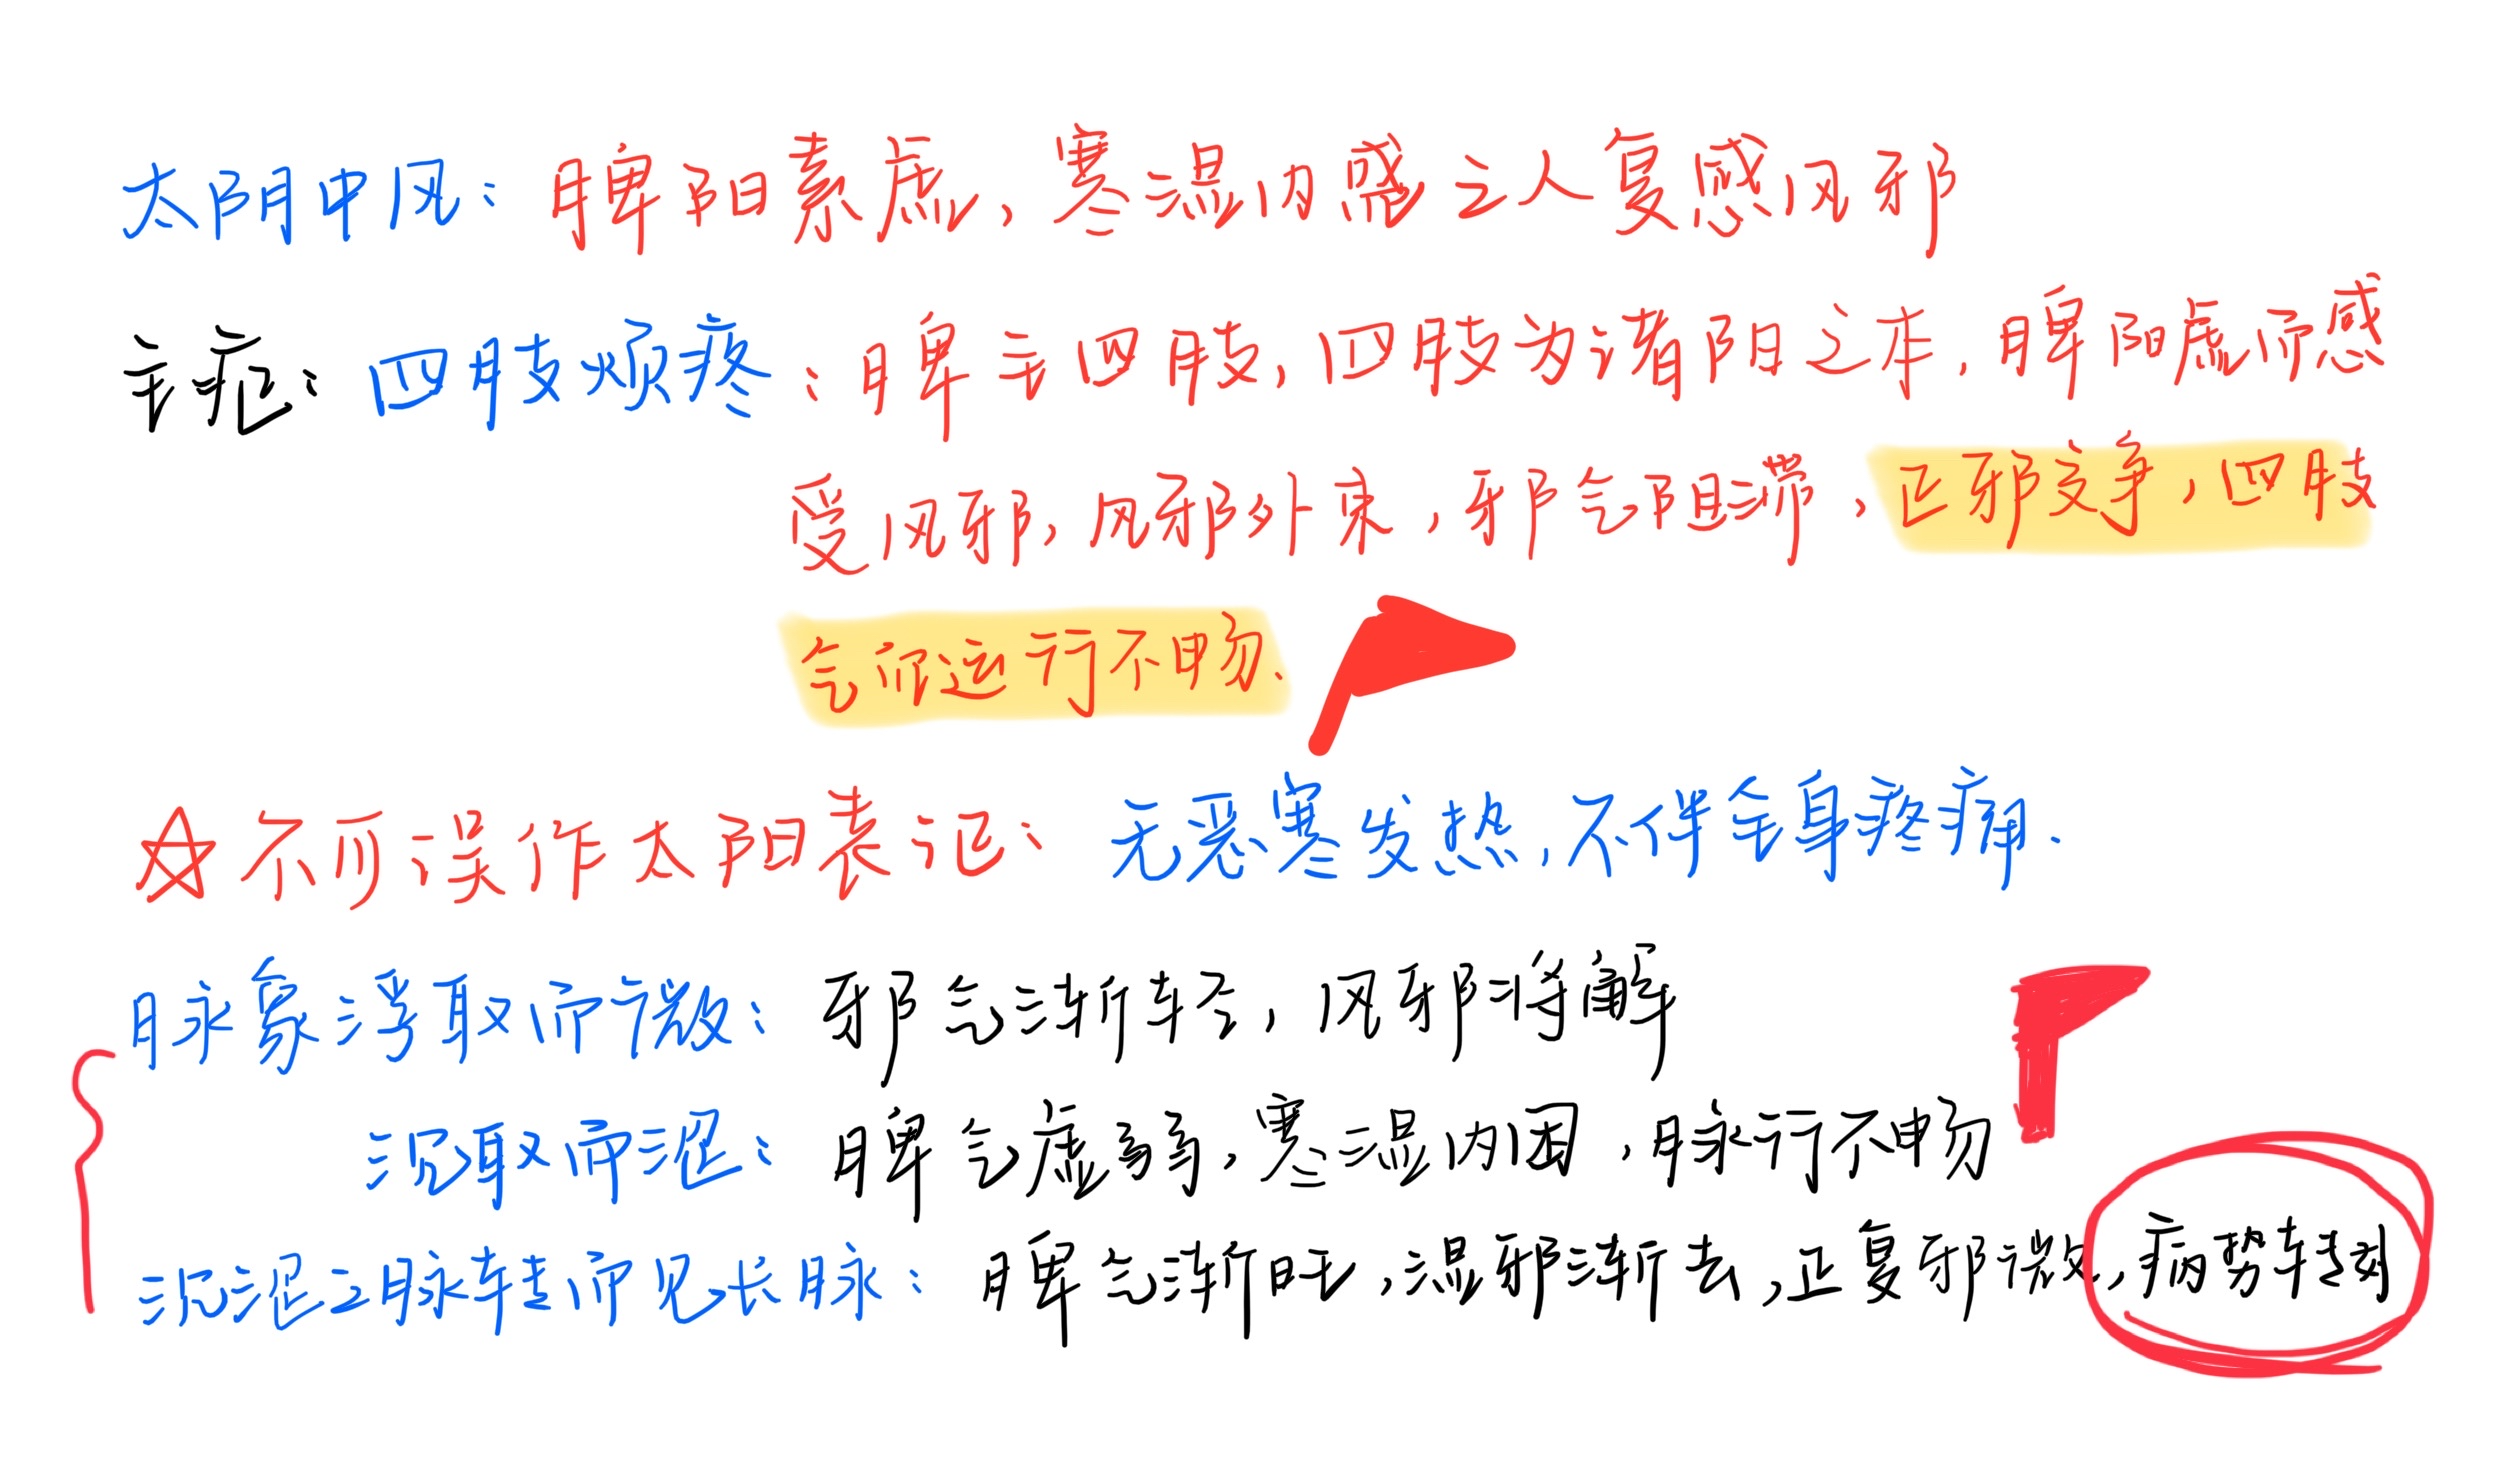 太阴中风：脾阳素虚，寒湿内盛之人复感风邪
主症：四肢烦疼：脾主四肢，四肢为诸阳之本，脾阳虚而感
受风邪，风邪外束，邪气阻滞，正邪交争，四肢
气血运行不畅.
☆不可误作太阳表证：无恶寒发热，不伴全身疼痛.
脉象浮取而微：邪气渐轻，风邪将解
沉取而涩：脾气虚弱，寒湿内困，脉行不畅
沉涩之脉转而见长脉：脾气渐旺，湿邪渐去，正复邪微，病势转愈